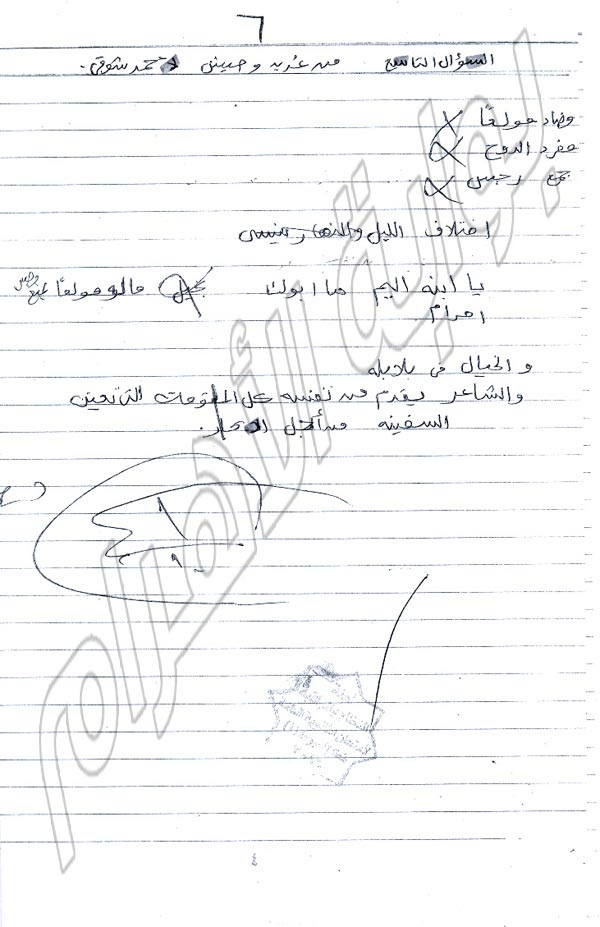 ٦
السؤال التاسع من غربه وحنين لأحمد شوقي.
مضاد مولعًا
مفرد الدوح
جمع رجس
اختلاف الليل والنهار ينسى
يا ابنه اليم ما ابوك بخيل ماله مولعًا بمنع وحبس
احرام
والخيال فى بلابله
والشاعر يقدم من نفسه كل المقومات التى تعين
السفينه من أجل
٩
بوابة الأهرام
٤